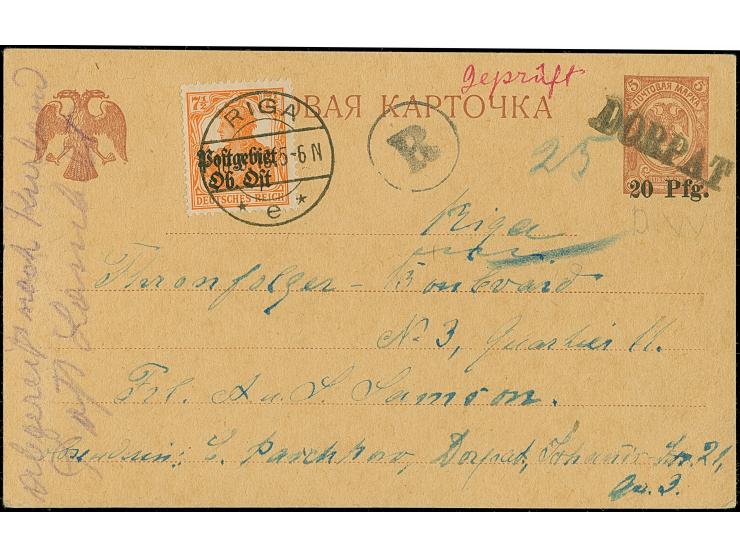 geprüft
ОВАЯ КАРТОЧКА
5 ПОЧТОВАЯ МАРКА 5
DORPAT
20 Pfg.
7½
Postgebiet
Ob. Ost
DEUTSCHES REICH
RIGA
5-6 N
* e *
R
25
D W
Riga
Thronfolger - Boulevard
No 3, Quartier 11.
Frl. A u. S. Samson.
Absenderin: Dorpat, Johannis-Str. 21,
Qu. 3.
abgereist nach Kurland